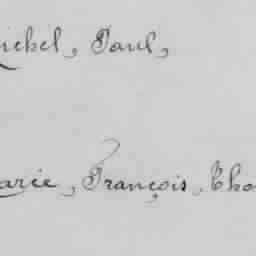 ichel, Paul,
arie, François, Tho